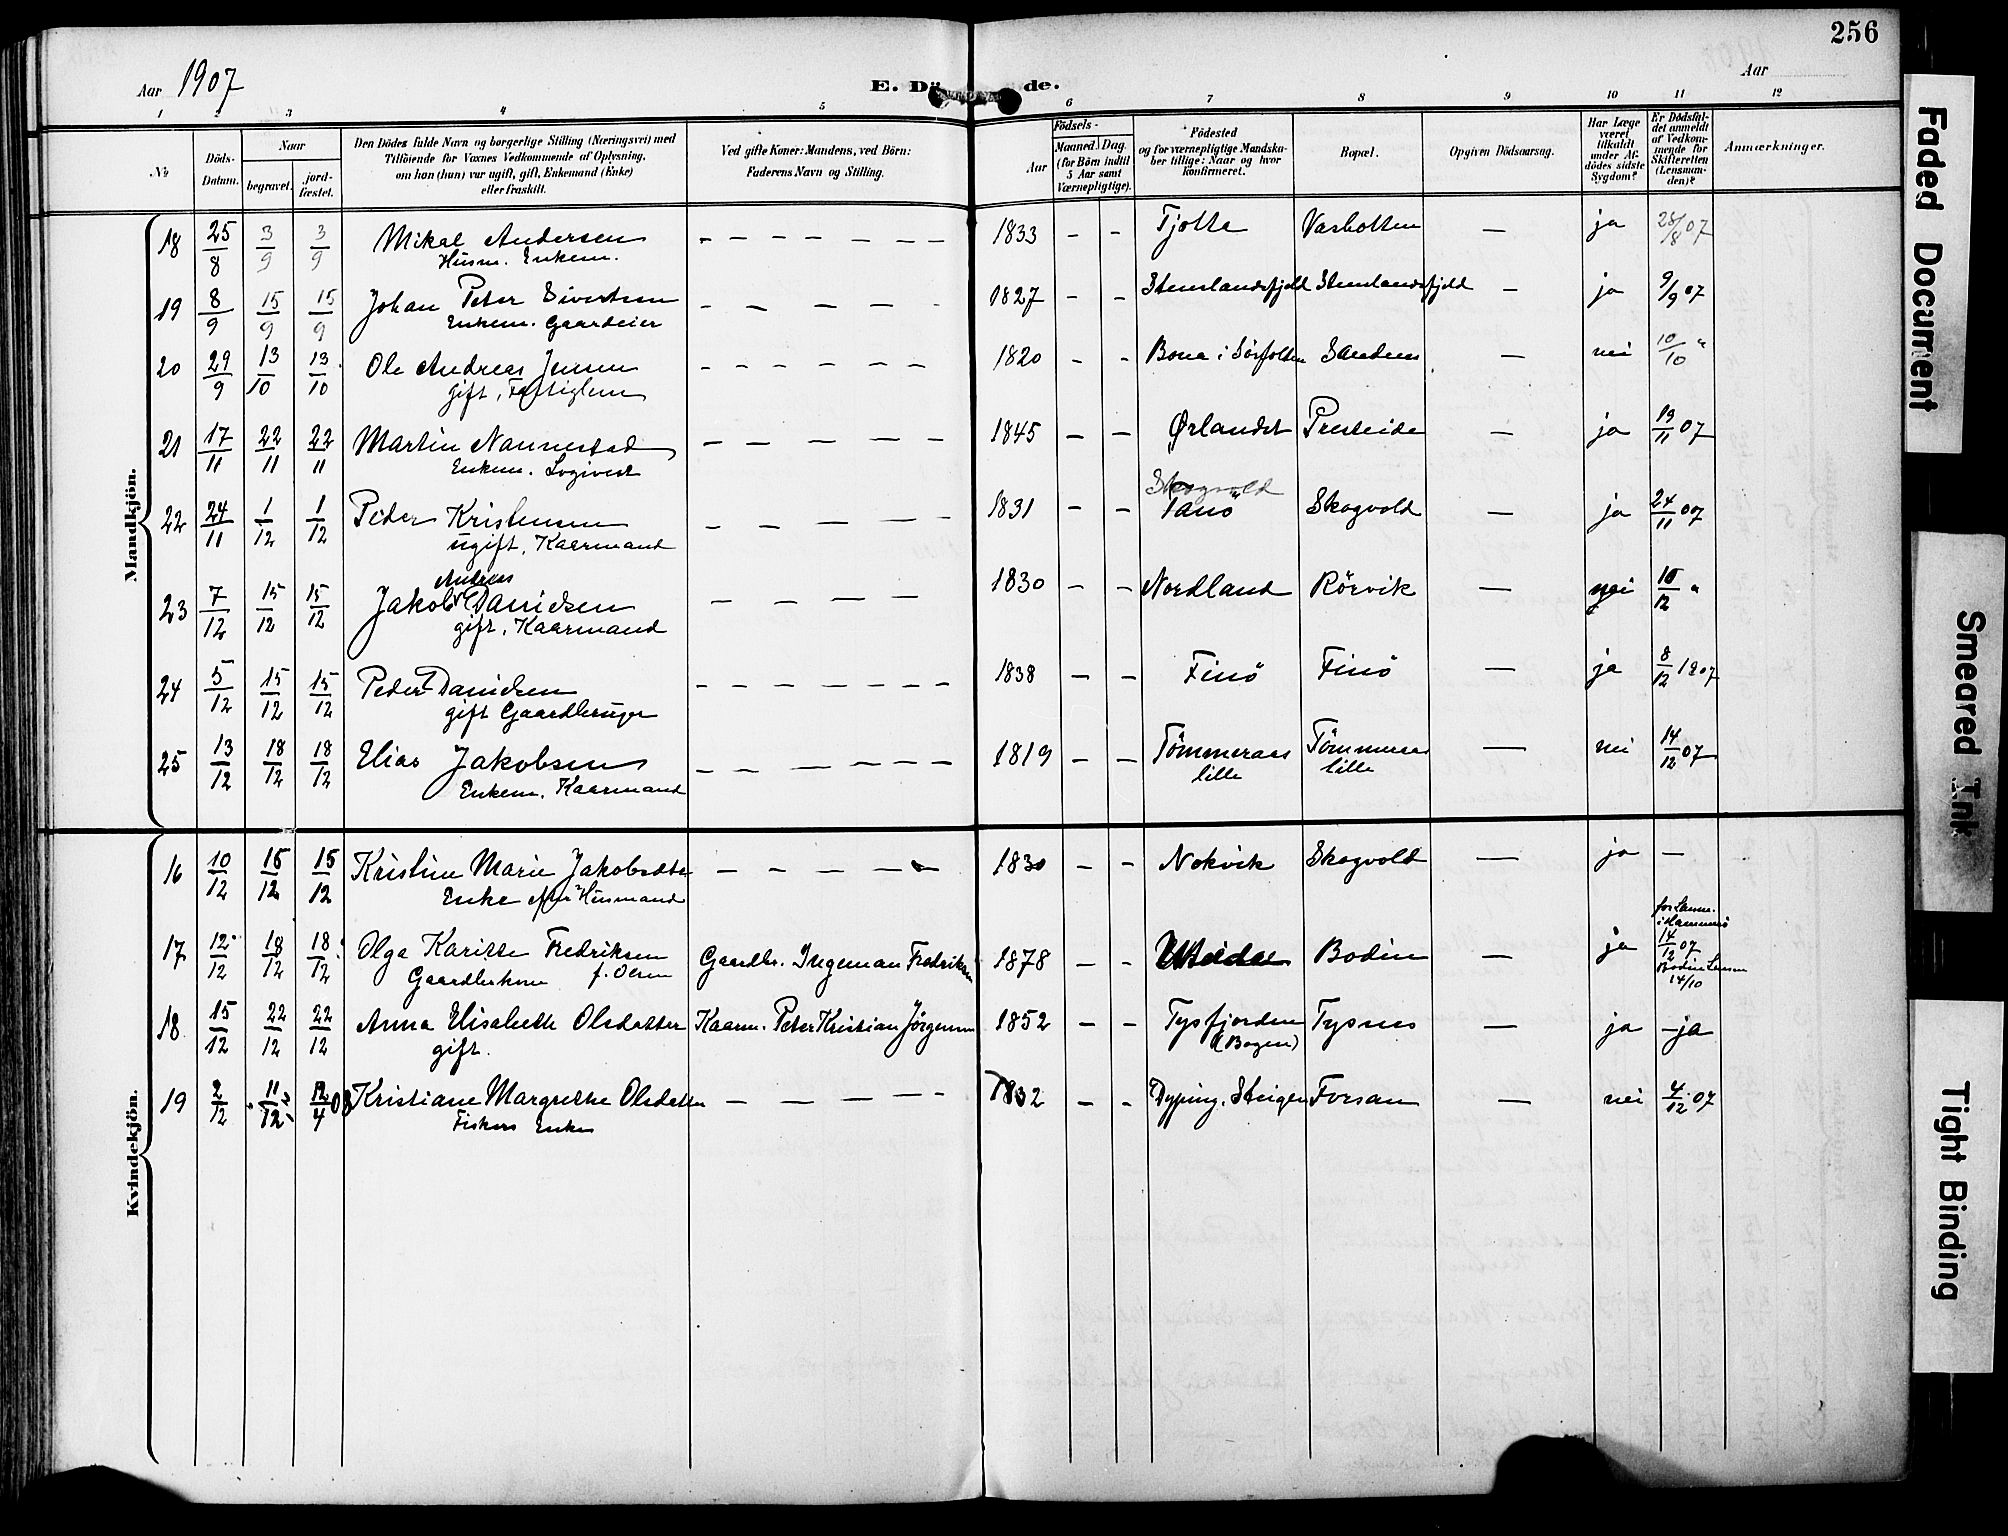 256
Aar 1907
E. Dö de.
Aar
1 2 3 4 5 6 7 8 9 10 11 12
No
Döds-Datum.
Naar
begravet.
jord-fæstet.
Den Dödes fulde Navn og borgerlige Stilling (Næringsvei) med
Tilföiende for Voxnes Vedkommende af Oplysning,
om han (hun) var ugift, gift, Enkemand (Enke)
eller fraskilt.
Ved gifte Koner: Mandens, ved Börn:
Faderens Navn og Stilling.
Födsels-
Aar
Maaned. Dag.
(for Börn indtil
5 Aar samt
Værnepligtige).
Födested
og for værnepligtige Mandska-
ber tillige: Naar og hvor
konfirmeret.
Bopæl.
Opgiven Dödsaarsag.
Har Læge
været
tilkaldt
under Af-
dödes sidste
Sygdom?
Er Dödsfal-
det anmeldt
af Vedkom-
mende for
Skifteretten
(Lensman-
den)?
Anmærkninger.
Mandkjön.
18 25/8 3/9 3/9 Mikal Andersen – – – – – – 1833 – – Tjotta Varbotten – ja 28/8 07
Husm. Enkem.
19 8/9 15/9 15/9 Johan Peter Sivertsen – – – – – 1827 – – Stenslandsfjeld Stenslandsfjeld – ja 9/9 07
Enkem. Gaardeier
20 29/9 13/10 13/10 Ole Andreas Jensen – – – – – – 1820 – – Bona i Sörfolden Sanden – nei 10/10 "
gift, Fattiglem
21 17/11 22/11 22/11 Martin Nannestad – – – – – 1845 – – Ørlandet Presteide – ja 19/11 07
Enkem. Logivert
Skogvold
22 24/11 1/12 1/12 Peder Kristensen – – – – – 1831 – – Skogvold – ja 24/11 07
ugift, Kaarmand
Andreas
23 7/12 15/12 15/12 Jakob Danielsen – – – – 1830 – – Nordland Rörvik – nei 10/12 "
gift, Kaarmand
24 5/12 15/12 15/12 Peder Danielsen – – – – – – 1838 – – Finö Finö – ja 8/12 1907
gift Gaardbruger
25 13/12 18/12 18/12 Elias Jakobsen – – – – – – 1819 – – Tömmeraas Tömmeraas – nei 14/12 07
Enkem. Kaarmand lille lille
Kvindekjön.
16 10/12 15/12 15/12 Kristine Marie Jakobsdtr – – – – – 1830 – – Nokvik Skogvold – ja –
Enke efter Husmand
17 12/12 18/12 18/12 Olga Fredriksen Gaardbr. Ingeman Fredriksen 1878 – – Bodin – ja for Lensm. i Hammerö 14/12 07
Gaardbrkone f. Olsen Bodin Lensm 14/10
18 15/12 22/12 22/12 Anna Elisabeth Olsdatter Kaarm. Peter Kristian Jörgensen 1852 – – Tysfjorden Tysnes – ja – ja
gift. (Bogen)
19 2/12 11/12 12/4 08 Kristiane Margrethe Olsdatter – – – – – 1832 – – Dyping, Steigen Forsan – nei 4/12 07
Fiskers Enke
Faded Document
Smeared Ink
Tight Binding